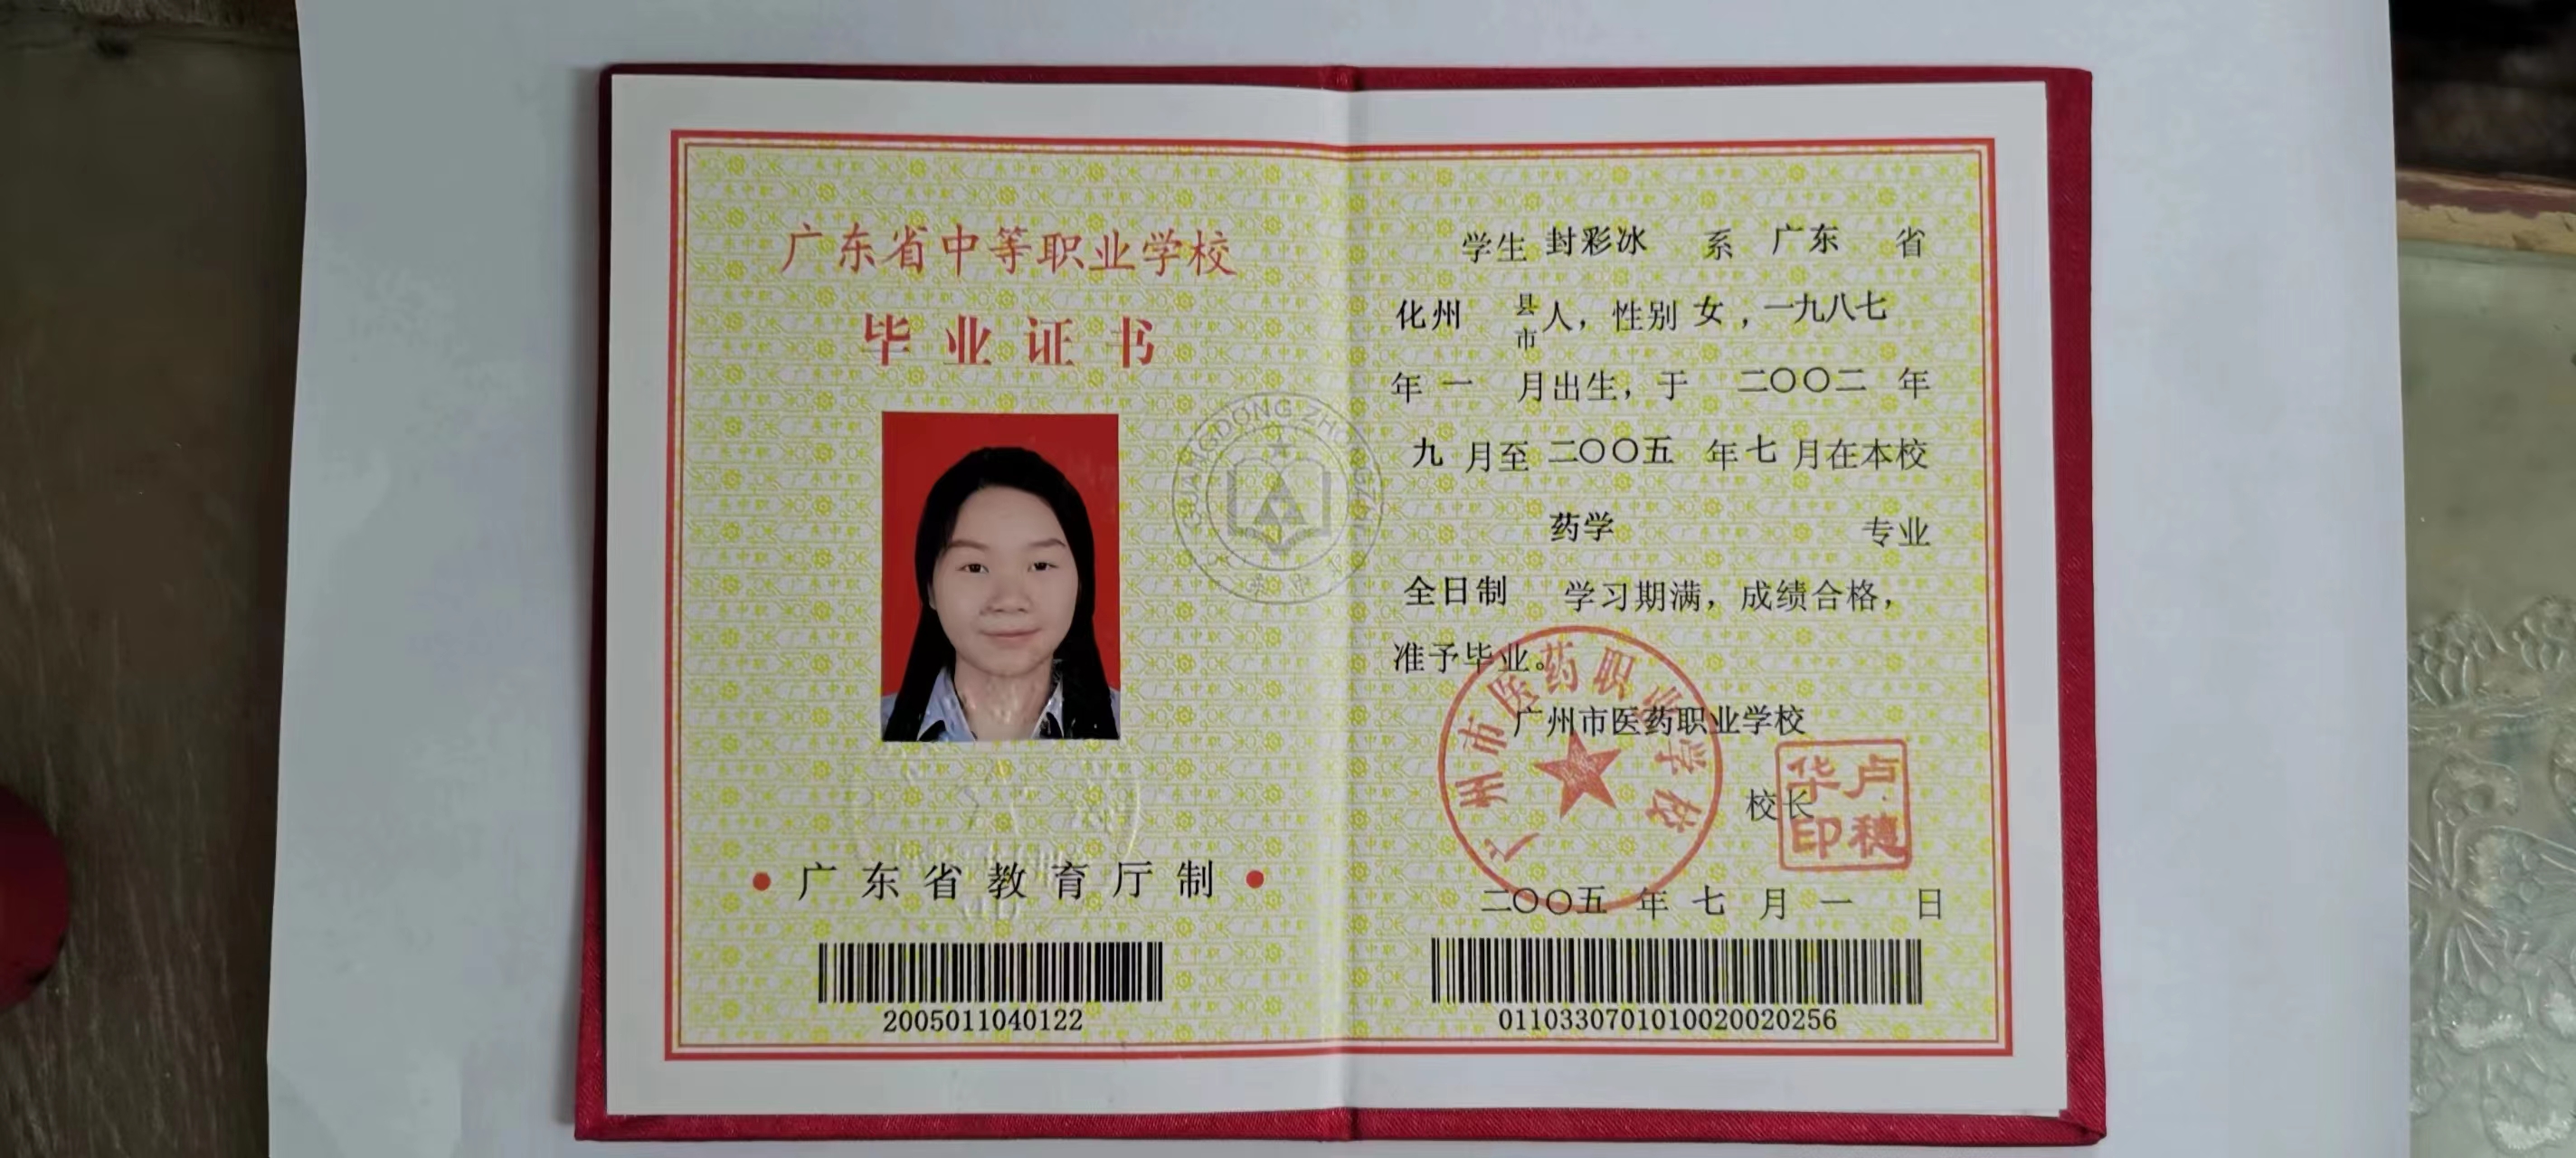 广东省中等职业学校
毕业证书
广东省教育厅制
2005011040122
GUANGDONG ZHONGZHI
学生 封彩冰 系 广东 省
化州 县市人，性别 女，一九八七
年 一 月出生，于 二〇〇二 年
九 月至 二〇〇五 年 七 月在本校
药学 专业
全日制 学习期满，成绩合格，
准予毕业。
广州市医药职业学校
广州市医药职业学校
校长
卢穗华印
二〇〇五 年 七 月 一 日
0110330701010020020256